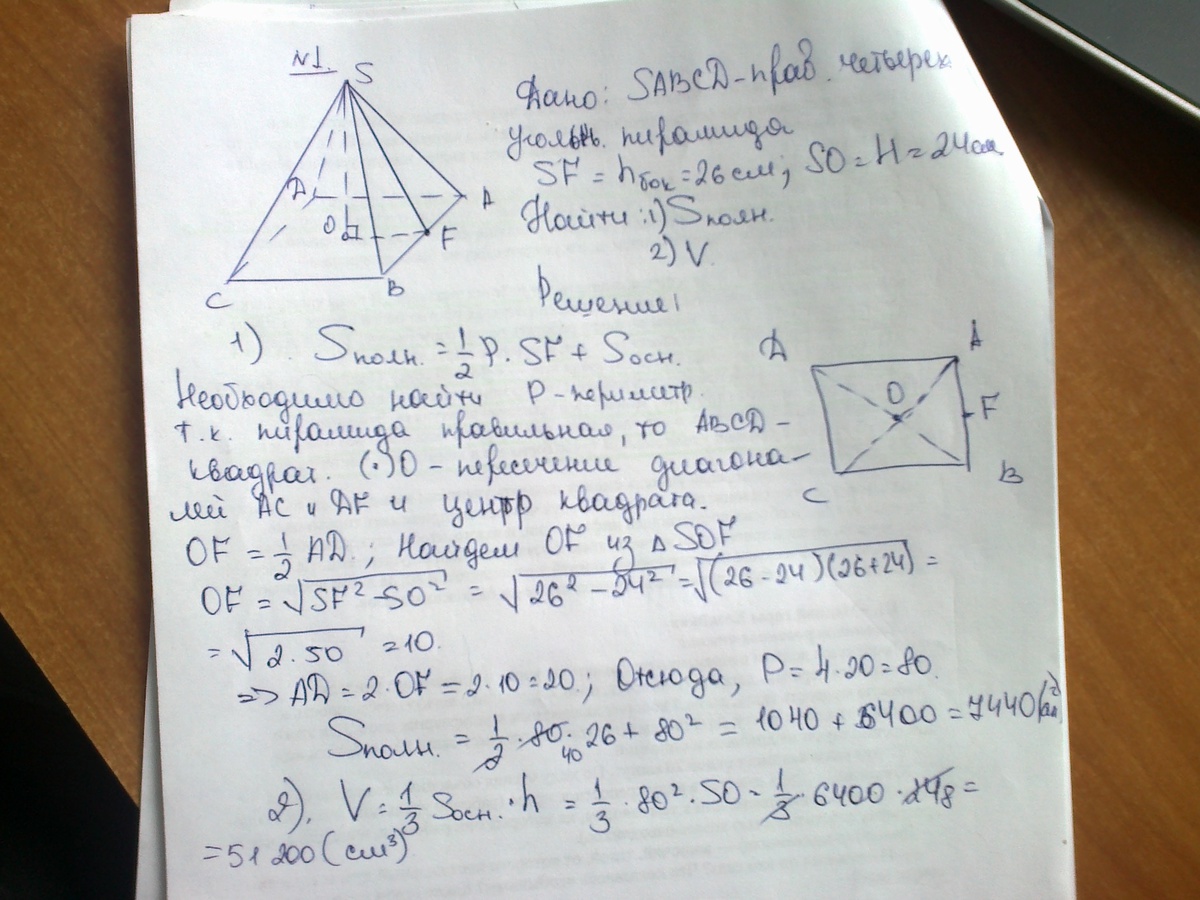 №1.
S
Дано: SABCD - прав. четырех
угольн. пирамида
SF = hбок = 26 см; SO = H = 24 см
Найти: 1) Sполн.
2) V.
D A
O F
C B
Решение:
1) Sполн. = 1/2 P · SF + Sосн.
Необходимо найти P - периметр.
т.к. пирамида правильная, то ABCD -
квадрат. (·) O - пересечение диагона-
лей AC и DF и центр квадрата.
D A
O F
C B
OF = 1/2 AD.; Найдем OF из △ SOF
OF = √(SF² - SO²) = √(26² - 24²) = √((26 - 24)(26 + 24)) =
= √(2·50) = 10.
=> AD = 2·OF = 2·10 = 20; Отсюда, P = 4·20 = 80.
Sполн. = 1/2 · 80 · 26 + 80² = 1040 + 6400 = 7440 (см²)
40
2). V = 1/3 Sосн. · h = 1/3 · 80² · SO = 1/3 · 6400 · 24 8 =
= 51 200 (см³)